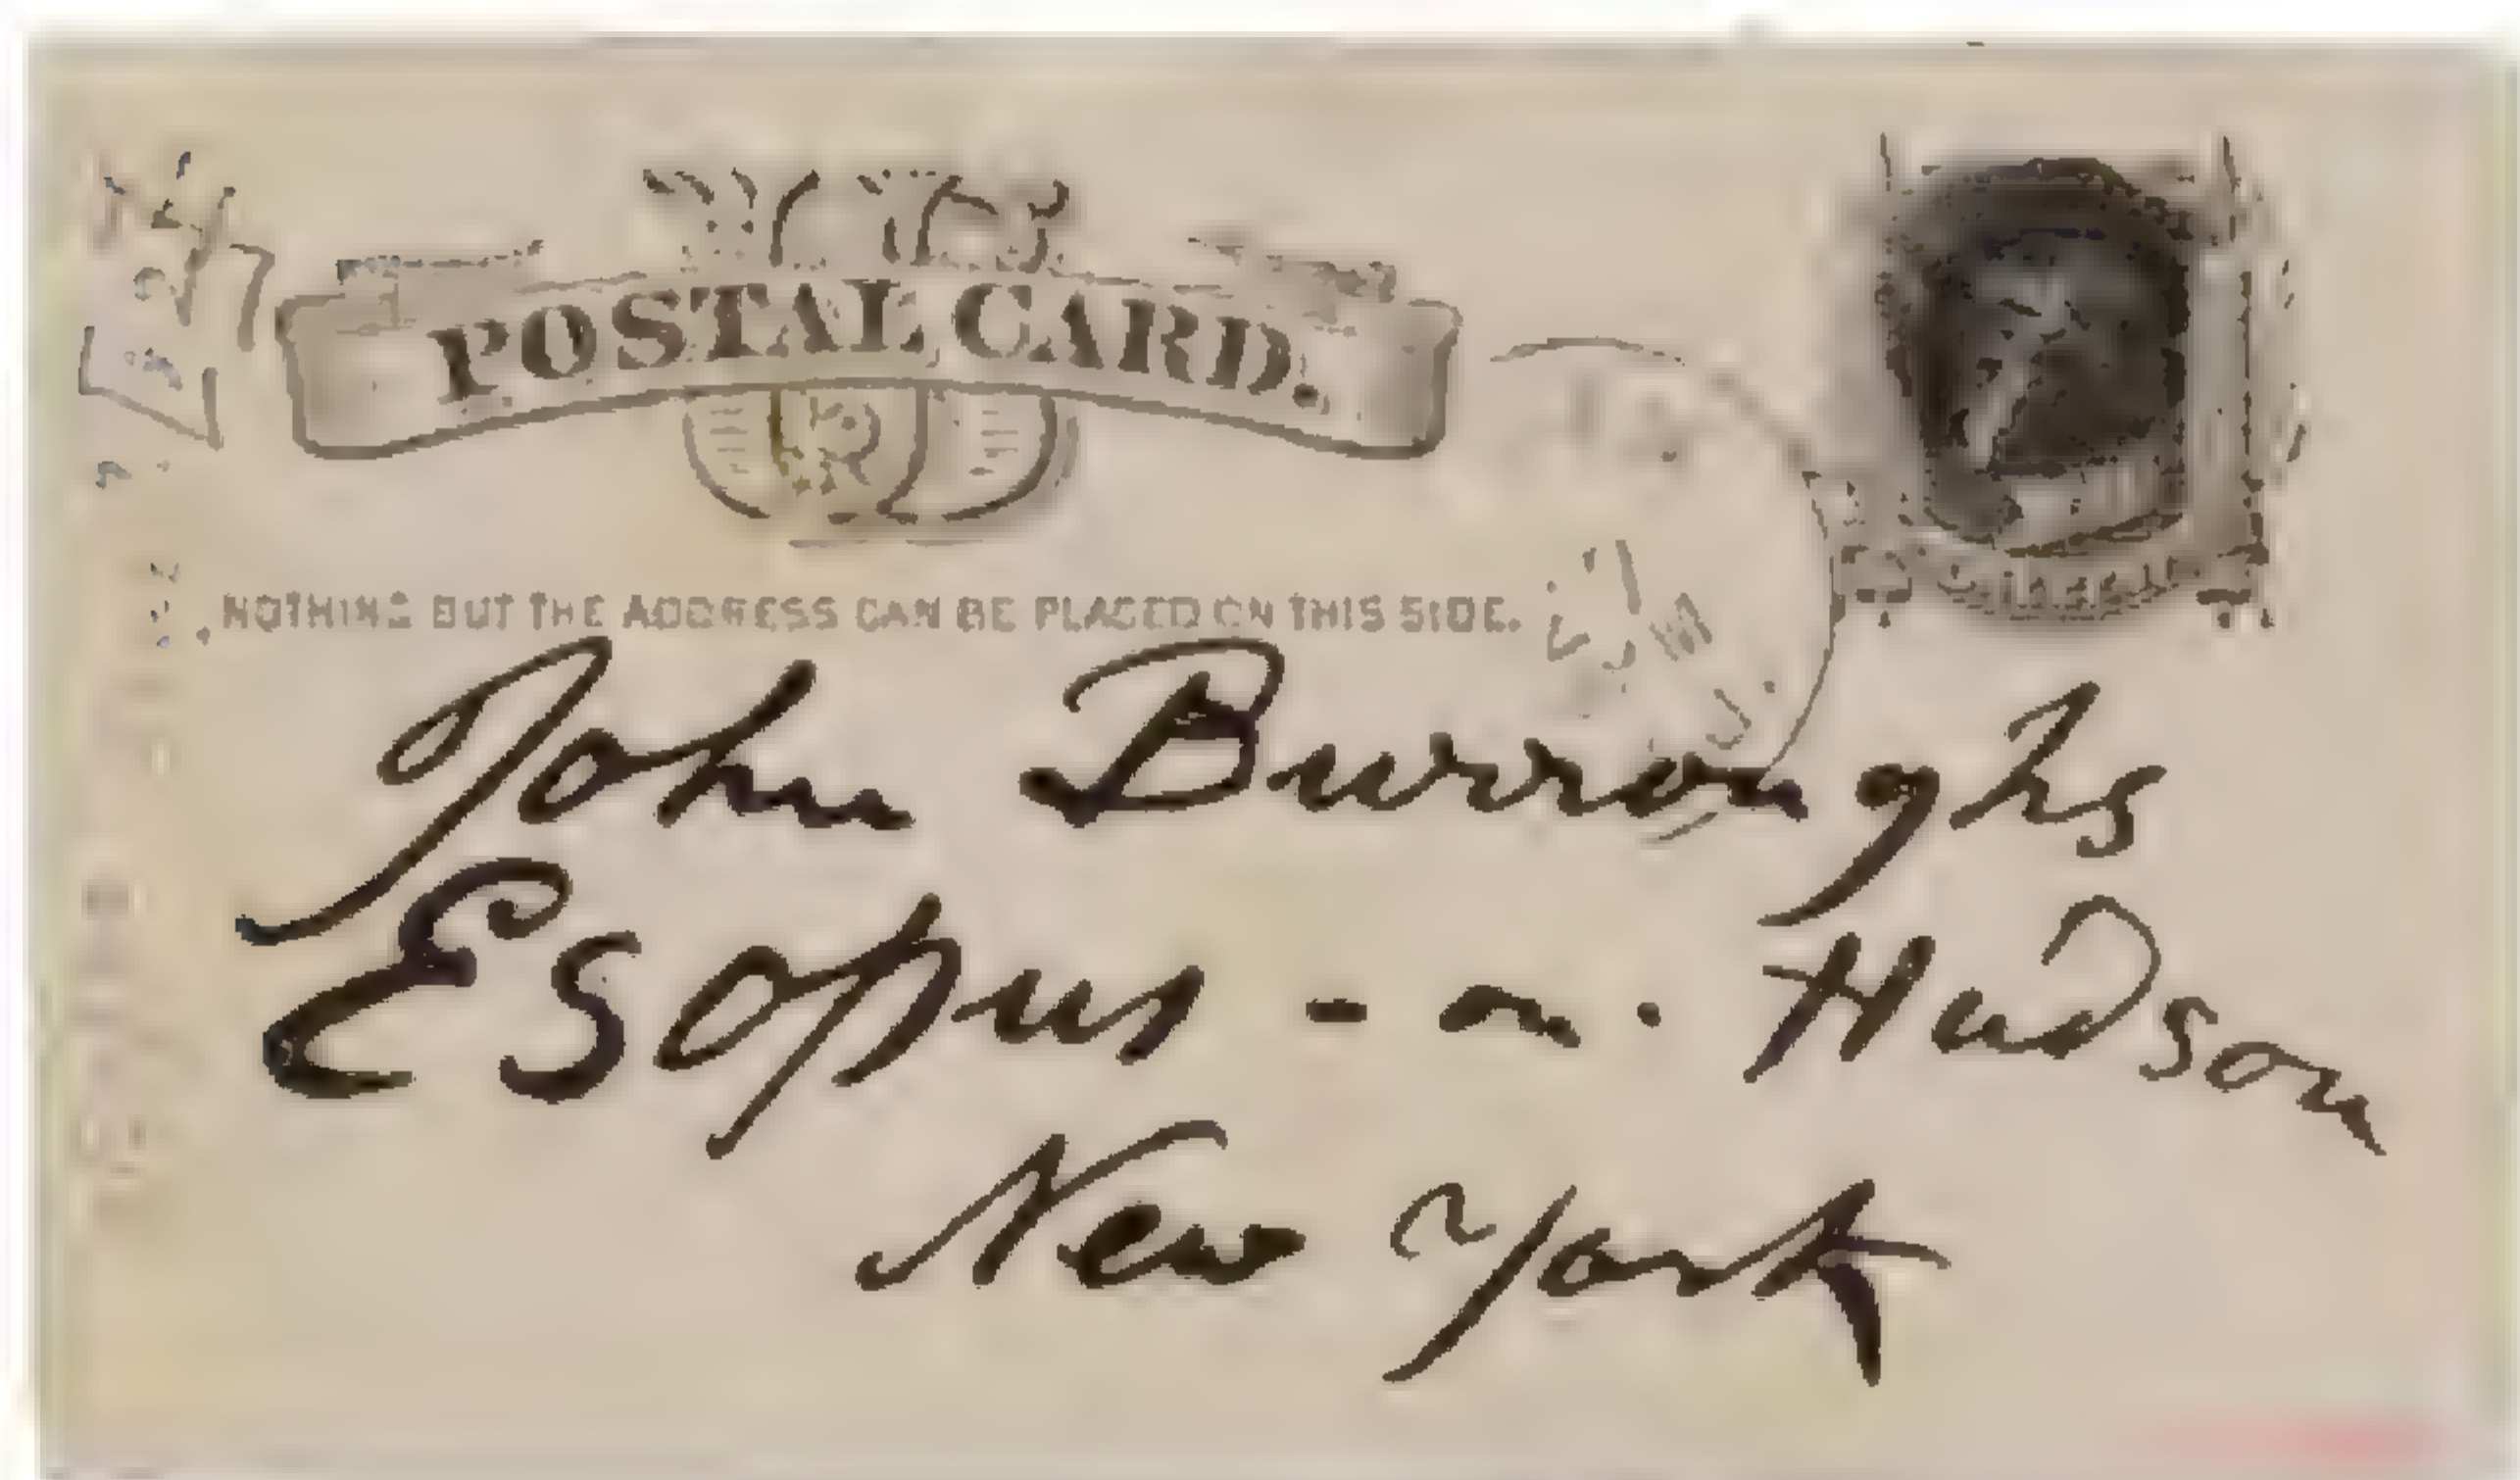 POSTAL CARD.
NOTHING BUT THE ADDRESS CAN BE PLACED ON THIS SIDE.
John Burroughs
Esopus - on . Hudson
New York